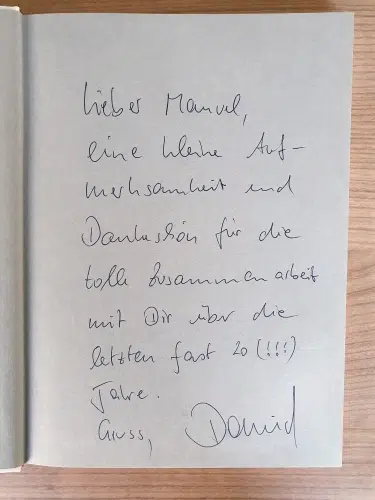 Lieber Manuel,
eine kleine Auf-
merksamkeit und
Dankeschön für die
tolle Zusammenarbeit
mit Dir über die
letzten fast 20 (!!!)
Jahre.
Gruss, David